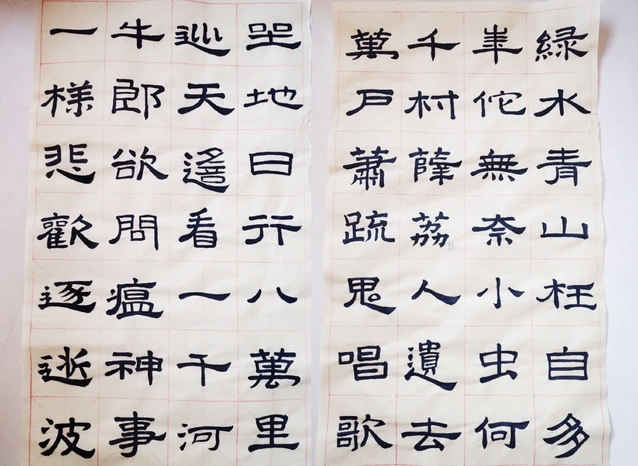 緑水青山枉自多
華佗無奈小虫何
千村薜荔人遺去
萬戶蕭疏鬼唱歌
坐地日行八萬里
巡天遙看一千河
牛郎欲問瘟神事
一樣悲歡逐逝波